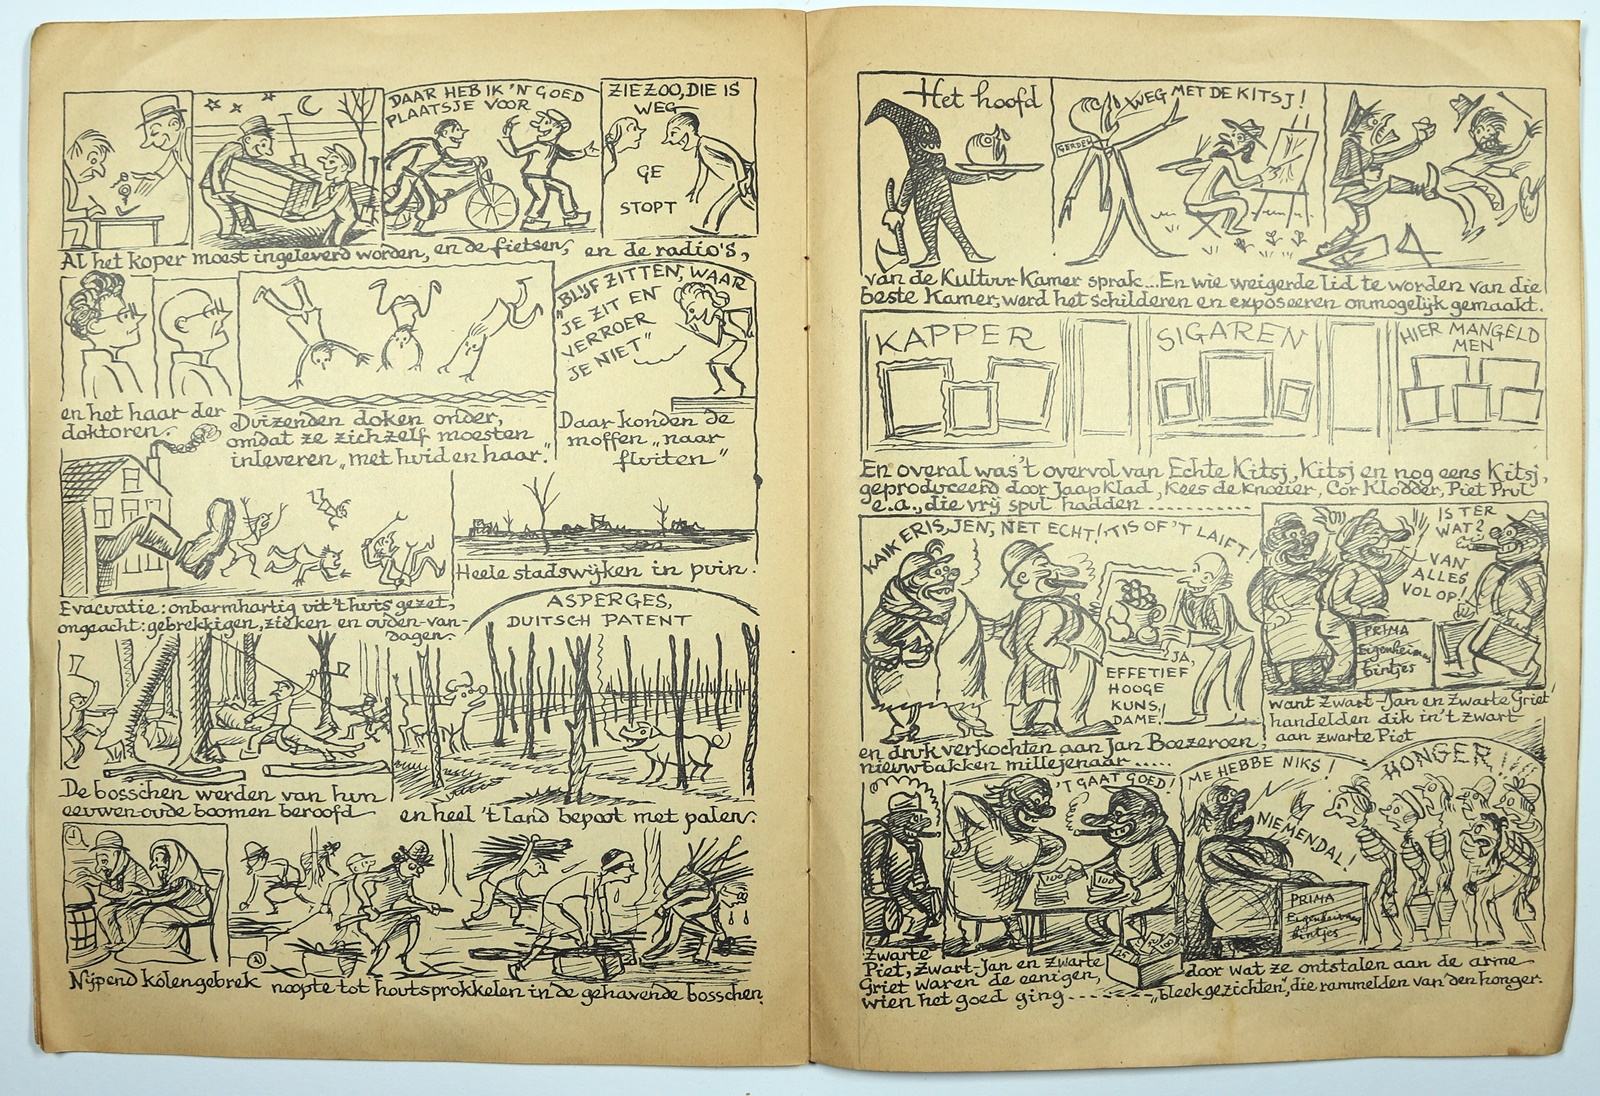 DAAR HEB IK 'N GOED
PLAATSJE VOOR
ZIEZOO, DIE IS
WEG
GE
STOPT
Al het koper moest ingeleverd worden, en de fietsen, en de radio's,
en het haar der
doktoren.
Duizenden doken onder,
omdat ze zichzelf moesten
inleveren „met huid en haar."
"BLIJF ZITTEN, WAAR
JE ZIT EN
VERROER
JE NIET"
Daar konden de
moffen „naar
fluiten"
Evacuatie: onbarmhartig uit 't huis gezet,
ongeacht: gebrekkigen, zieken en ouden-van-
dagen.
Heele stadswijken in puin.
De bosschen werden van hun
eeuwen-oude boomen beroofd
ASPERGES,
DUITSCH PATENT
en heel 't land bepoot met palen.
1
2
Nijpend kólengebrek noopte tot houtsprokkelen in de gehavende bosschen.
Het hoofd
GERDES
WEG MET DE KITSJ!
van de Kultuur-Kamer sprak...En wie weigerde lid te worden van die
beste Kamer, werd het schilderen en exposeeren onmogelijk gemaakt.
KAPPER
SIGAREN
HIER MANGELD
MEN
En overal was 't overvol van Echte Kitsj, Kitsj en nog eens Kitsj,
geproduceerd door Jaap Klad, Kees de Knoeier, Cor Klodder, Piet Prul
e.a., die vrij spul hadden ............
KAIK ERIS, JEN, NET ECHT!
'T IS OF 'T LAIFT!
JA,
EFFETIEF
HOOGE
KUNS,
DAME!
en druk verkochten aan Jan Boezeroen,
nieuwbakken millejenaar .....
IS TER
WAT?
VAN
ALLES
VOLOP!
PRIMA
Eigenheimers
bintjes
want Zwart-Jan en Zwarte Griet
handelden dik in 't zwart
aan zwarte Piet
'T GAAT GOED!
100
100
25
100
Zwarte
Piet, Zwart-Jan en Zwarte
Griet waren de eenigen,
wien het goed ging --------
ME HEBBE NIKS!
NIEMENDAL!
HONGER!!!!
PRIMA
Eigenheimers
bintjes
door wat ze ontstalen aan de arme
„bleekgezichten", die rammelden van den honger.